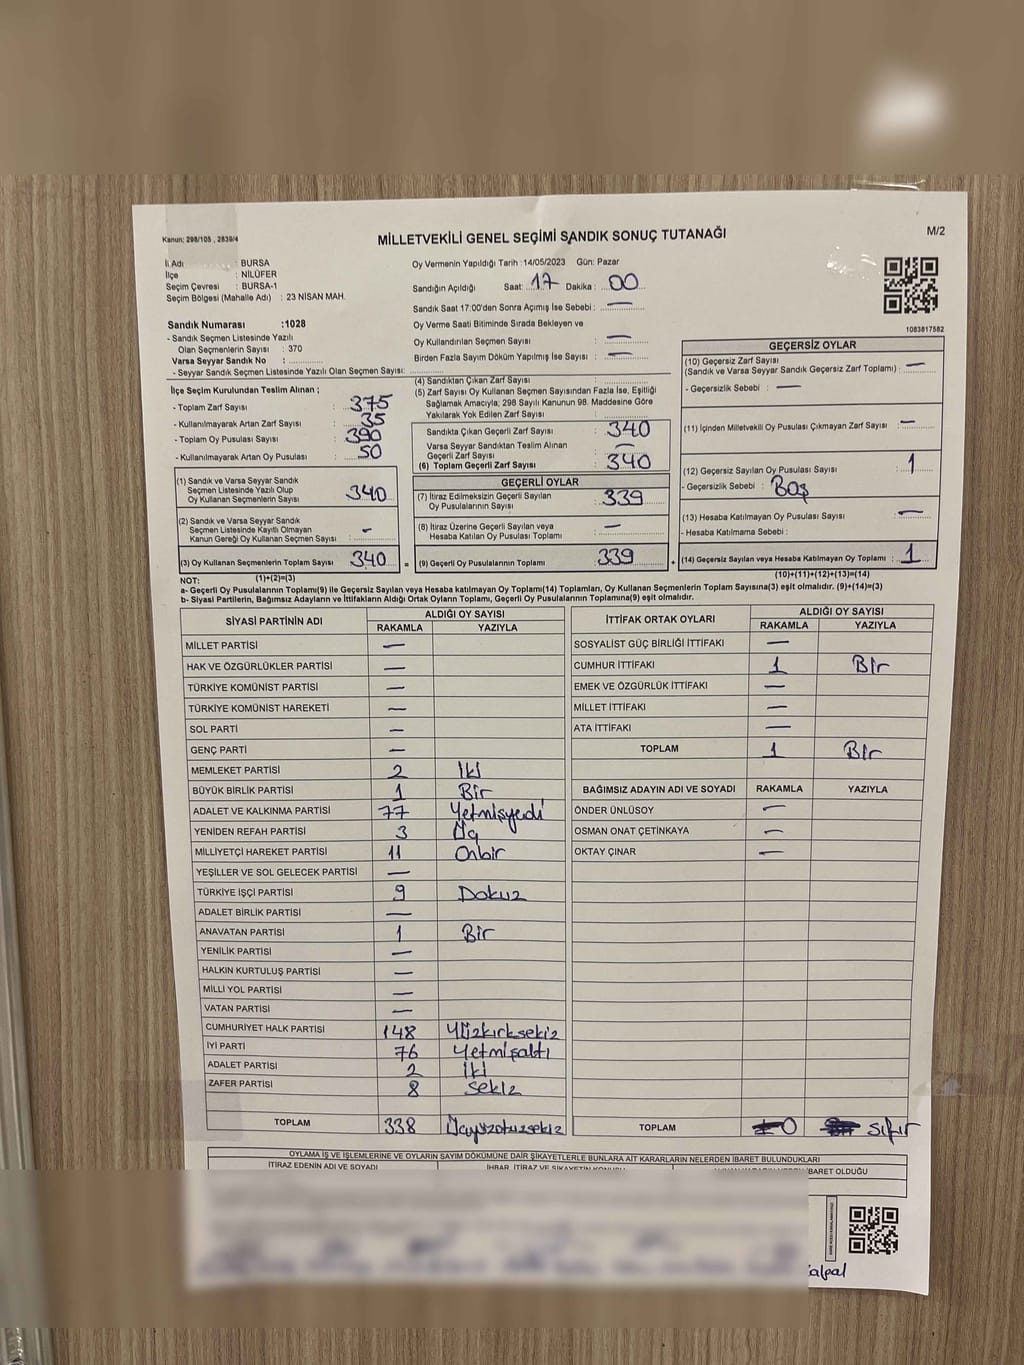 Kanun; 298/105 , 2839/4
MİLLETVEKİLİ GENEL SEÇİMİ SANDIK SONUÇ TUTANAĞI
M/2
İl Adı : BURSA
İlçe : NİLÜFER
Seçim Çevresi : BURSA-1
Seçim Bölgesi (Mahalle Adı) : 23 NİSAN MAH.
Oy Vermenin Yapıldığı Tarih :14/05/2023 Gün: Pazar
Sandığın Açıldığı Saat: 17 Dakika : 00
Sandık Saat 17:00'den Sonra Açılmış İse Sebebi : —
Oy Verme Saati Bitiminde Sırada Bekleyen ve
Oy Kullandırılan Seçmen Sayısı : —
Birden Fazla Sayım Döküm Yapılmış İse Sayısı : —
1083817582
Sandık Numarası :1028
- Sandık Seçmen Listesinde Yazılı
Olan Seçmenlerin Sayısı : 370
Varsa Seyyar Sandık No :
- Seyyar Sandık Seçmen Listesinde Yazılı Olan Seçmen Sayısı:
İlçe Seçim Kurulundan Teslim Alınan ;
- Toplam Zarf Sayısı : 375
- Kullanılmayarak Artan Zarf Sayısı : 35
- Toplam Oy Pusulası Sayısı : 390
- Kullanılmayarak Artan Oy Pusulası : 50
(1) Sandık ve Varsa Seyyar Sandık
Seçmen Listesinde Yazılı Olup
Oy Kullanan Seçmenlerin Sayısı : 340
(2) Sandık ve Varsa Seyyar Sandık
Seçmen Listesinde Kayıtlı Olmayan
Kanun Gereği Oy Kullanan Seçmen Sayısı : -
(3) Oy Kullanan Seçmenlerin Toplam Sayısı : 340
(1)+(2)=(3)
(4) Sandıktan Çıkan Zarf Sayısı :
(5) Zarf Sayısı Oy Kullanan Seçmen Sayısından Fazla İse, Eşitliği
Sağlamak Amacıyla; 298 Sayılı Kanunun 98. Maddesine Göre
Yakılarak Yok Edilen Zarf Sayısı :
Sandıkta Çıkan Geçerli Zarf Sayısı : 340
Varsa Seyyar Sandıktan Teslim Alınan
Geçerli Zarf Sayısı : —
(6) Toplam Geçerli Zarf Sayısı : 340
GEÇERLİ OYLAR
(7) İtiraz Edilmeksizin Geçerli Sayılan
Oy Pusulalarının Sayısı : 339
(8) İtiraz Üzerine Geçerli Sayılan veya
Hesaba Katılan Oy Pusulası Toplamı : —
= (9) Geçerli Oy Pusulalarının Toplamı : 339
GEÇERSİZ OYLAR
(10) Geçersiz Zarf Sayısı
(Sandık ve Varsa Seyyar Sandık Geçersiz Zarf Toplamı) : —
- Geçersizlik Sebebi : —
(11) İçinden Milletvekili Oy Pusulası Çıkmayan Zarf Sayısı : —
(12) Geçersiz Sayılan Oy Pusulası Sayısı : 1
- Geçersizlik Sebebi : Boş
(13) Hesaba Katılmayan Oy Pusulası Sayısı : —
- Hesaba Katılmama Sebebi :
+ (14) Geçersiz Sayılan veya Hesaba Katılmayan Oy Toplamı : 1
(10)+(11)+(12)+(13)=(14)
NOT:
a- Geçerli Oy Pusulalarının Toplamı(9) ile Geçersiz Sayılan veya Hesaba katılmayan Oy Toplamı(14) Toplamları, Oy Kullanan Seçmenlerin Toplam Sayısına(3) eşit olmalıdır. (9)+(14)=(3)
b- Siyasi Partilerin, Bağımsız Adayların ve İttifakların Aldığı Ortak Oyların Toplamı, Geçerli Oy Pusulalarının Toplamına(9) eşit olmalıdır.
SİYASİ PARTİNİN ADI ALDIĞI OY SAYISI
RAKAMLA YAZIYLA
MİLLET PARTİSİ —
HAK VE ÖZGÜRLÜKLER PARTİSİ —
TÜRKİYE KOMÜNİST PARTİSİ —
TÜRKİYE KOMÜNİST HAREKETİ —
SOL PARTİ —
GENÇ PARTİ —
MEMLEKET PARTİSİ 2 İki
BÜYÜK BİRLİK PARTİSİ 1 Bir
ADALET VE KALKINMA PARTİSİ 77 Yetmişyedi
YENİDEN REFAH PARTİSİ 3 Üç
MİLLİYETÇİ HAREKET PARTİSİ 11 Onbir
YEŞİLLER VE SOL GELECEK PARTİSİ —
TÜRKİYE İŞÇİ PARTİSİ 9 Dokuz
ADALET BİRLİK PARTİSİ —
ANAVATAN PARTİSİ 1 Bir
YENİLİK PARTİSİ —
HALKIN KURTULUŞ PARTİSİ —
MİLLİ YOL PARTİSİ —
VATAN PARTİSİ —
CUMHURİYET HALK PARTİSİ 148 Yüzkırksekiz
İYİ PARTİ 76 Yetmişaltı
ADALET PARTİSİ 2 İki
ZAFER PARTİSİ 8 Sekiz
TOPLAM 338 Üçyüzotuzsekiz
İTTİFAK ORTAK OYLARI ALDIĞI OY SAYISI
RAKAMLA YAZIYLA
SOSYALİST GÜÇ BİRLİĞİ İTTİFAKI —
CUMHUR İTTİFAKI 1 Bir
EMEK VE ÖZGÜRLÜK İTTİFAKI —
MİLLET İTTİFAKI —
ATA İTTİFAKI —
TOPLAM 1 Bir
BAĞIMSIZ ADAYIN ADI VE SOYADI RAKAMLA YAZIYLA
ÖNDER ÜNLÜSOY —
OSMAN ONAT ÇETİNKAYA —
OKTAY ÇINAR —
TOPLAM 0 sıfır
OYLAMA İŞ VE İŞLEMLERİNE VE OYLARIN SAYIM DÖKÜMÜNE DAİR ŞİKAYETLERLE BUNLARA AİT KARARLARIN NELERDEN İBARET BULUNDUKLARI
İTİRAZ EDENİN ADI VE SOYADI İHBAR, İTİRAZ VE ŞİKAYETİN KONUSU İBARET OLDUĞU